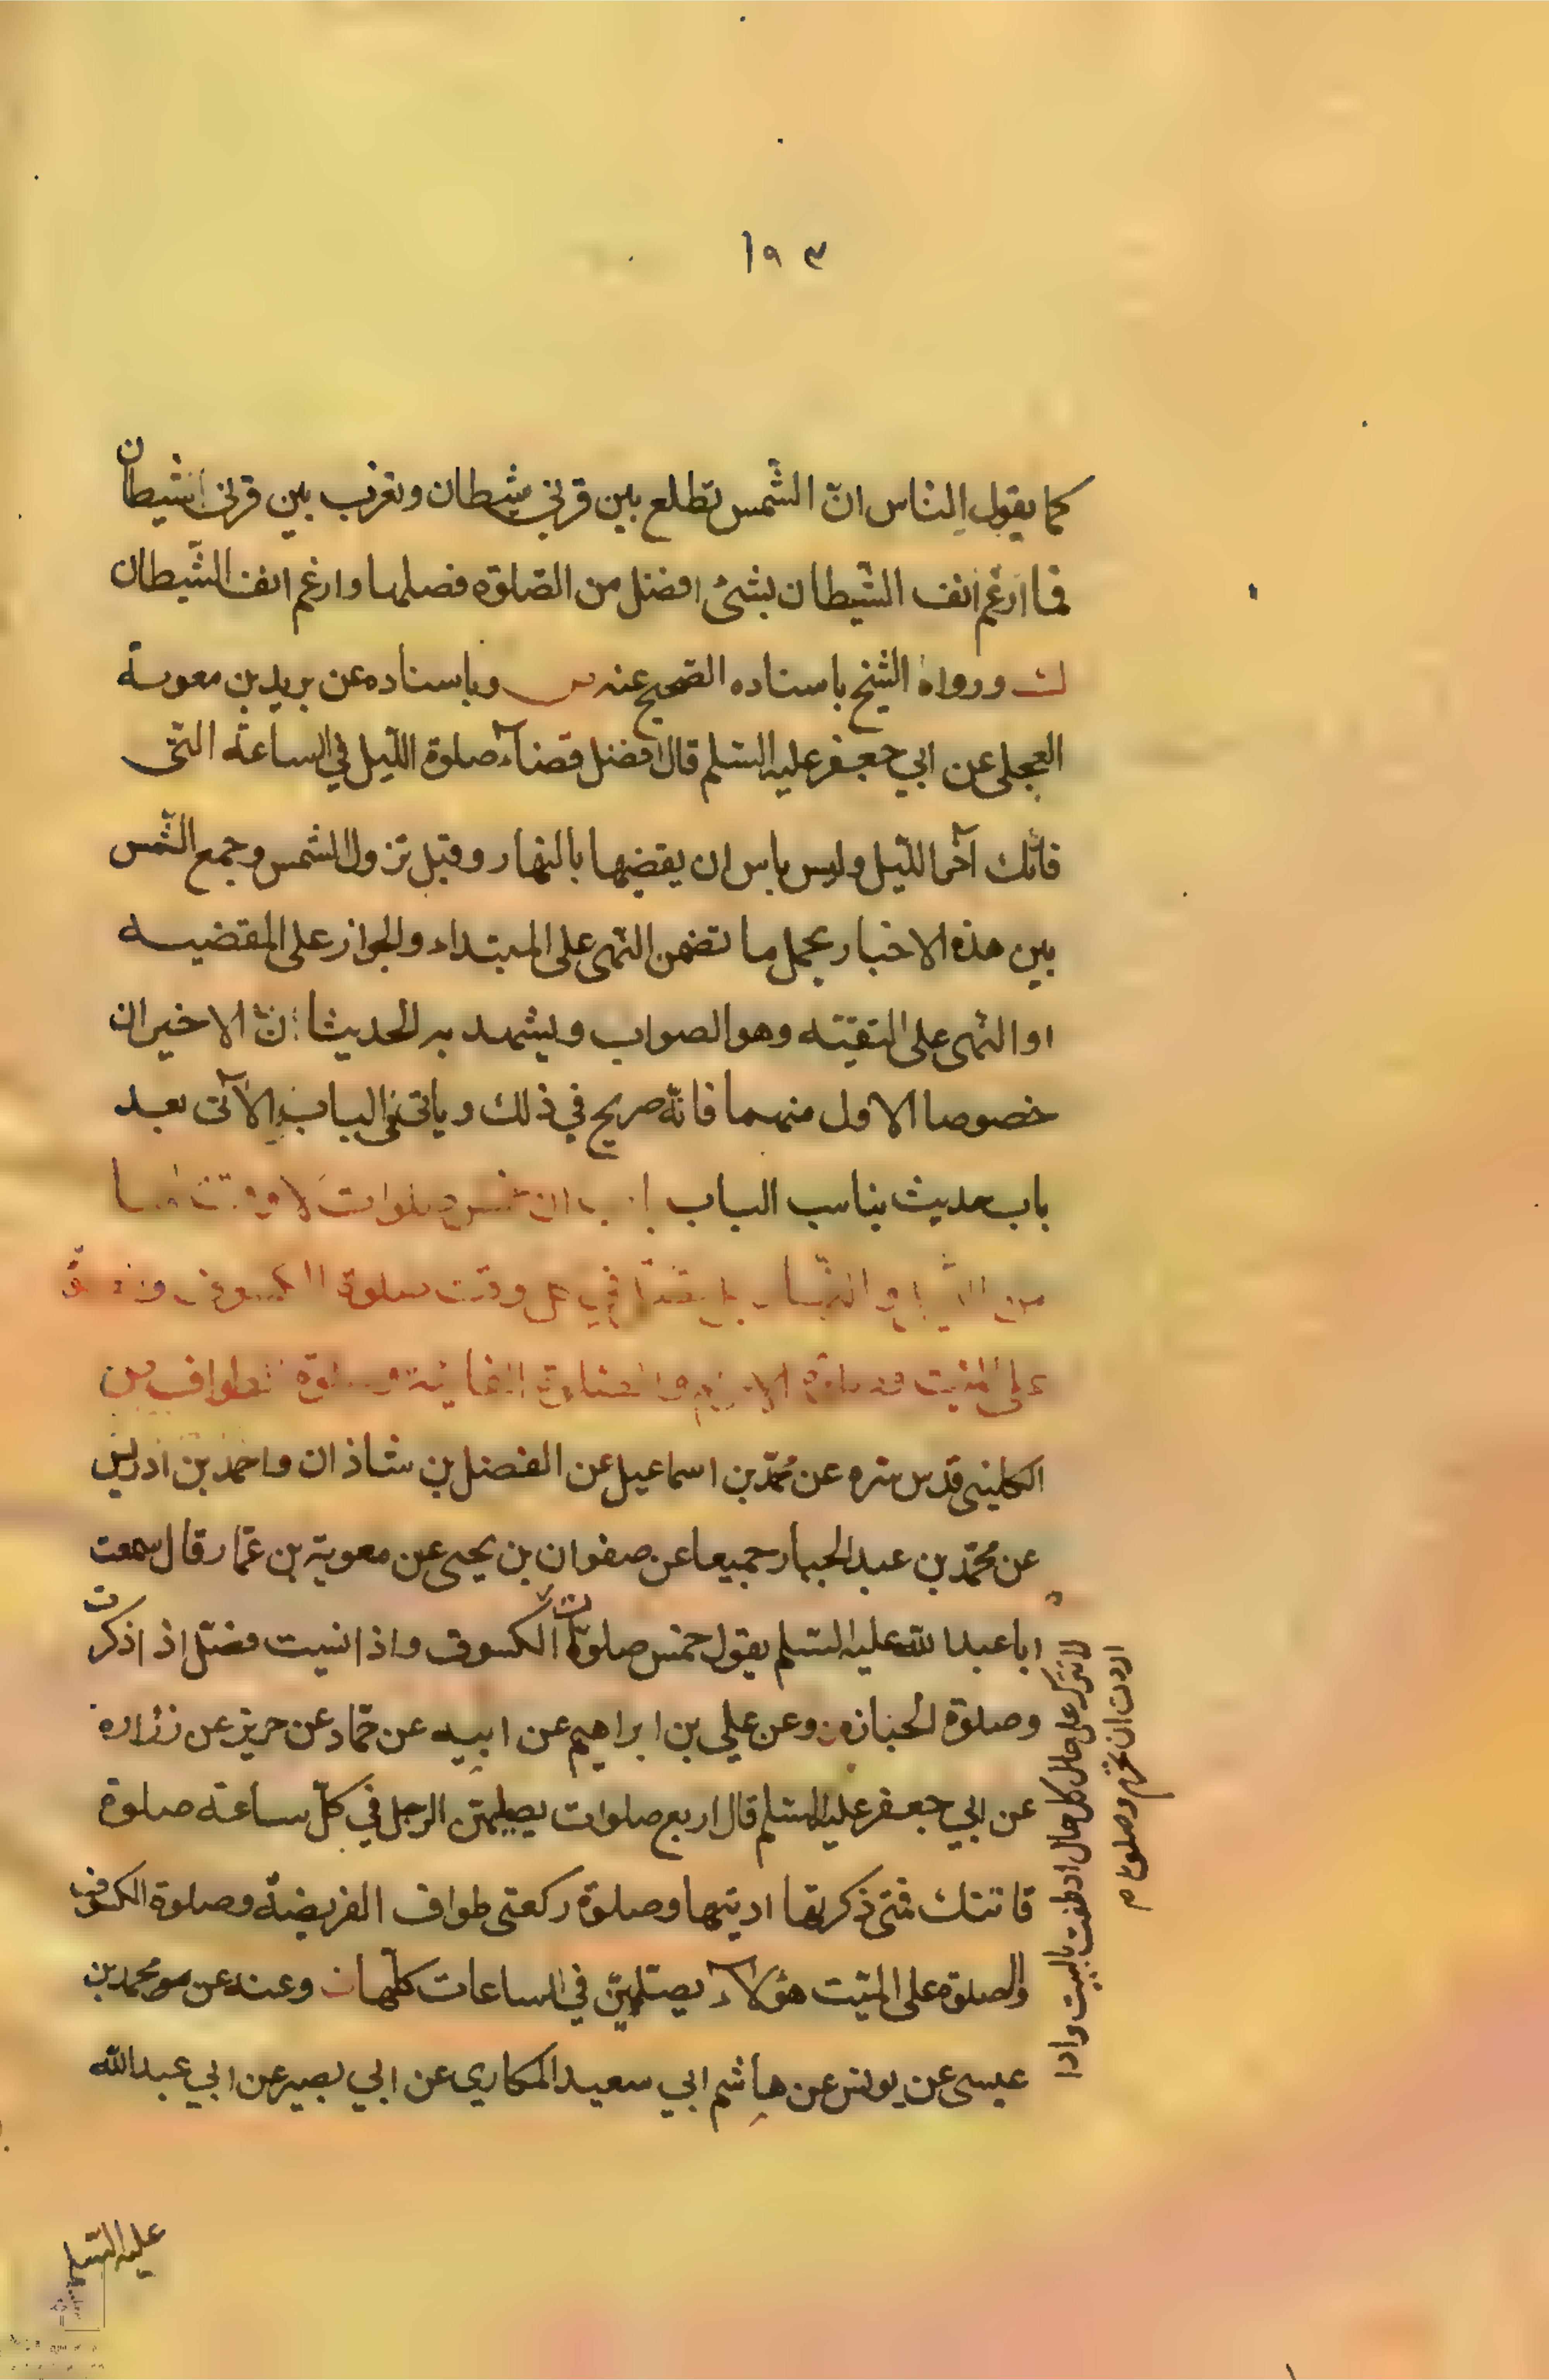 ١٩٣
كما يقول الناس ان الشمس تطلع بين قرني شيطان وتغرب بين قرني الشيطان
فما ارغم انف الشيطان بشئ افضل من الصلوة فصلها وارغم انف الشيطان
ورواه الشيخ باسناده الصحيح عنه وباسناده عن بريد بن معوية
العجلي عن ابي جعفر عليه السلم قال افضل قضاء صلوة الليل في الساعة التي
فاتتك آخر الليل وليس باس ان يقضيها بالنهار وقبل تزول الشمس وجمع
بين هذه الاخبار بحمل ما تضمن النهى على المبتداء والجواز على المقضيه
او النهى على التقيته وهو الصواب ويشهد به الحديثان الاخيران
خصوصا الاول منهما فانه صريح في ذلك وياتي في الباب الآتى بعد
باب حديث يناسب الباب
وقت صلوة الكسوف
على الميت
الكليني قدس سره عن محمد بن اسماعيل عن الفضل بن شاذان واحمد بن ادريس
عن محمد بن عبد الجبار جميعا عن صفوان بن يحيى عن معوية بن عمار قال سمعت
ابا عبد الله عليه السلم يقول خمس صلوات الكسوف واذا نسيت فصل اذا ذكرت
وصلوة الجنازه وعن علي بن ابراهيم عن ابيه عن حماد عن حريز عن زراره
عن ابي جعفر عليه السلم قال اربع صلوات يصليهن الرجل في كل ساعة صلوة
فاتتك فمتى ذكرتها اديتها وصلوة ركعتى طواف الفريضة وصلوة الكسوف
والصلوة على الميت هؤلاء يصليهن في الساعات كلها وعنه عن محمد بن
عيسى عن يونس عن هاشم ابي سعيد المكاري عن ابي بصير عن ابي عبد الله
لا تترك على حال كل حال اذا طفت بالبيت واذا
اردت ان تحرم وصلوة
عليه السلم